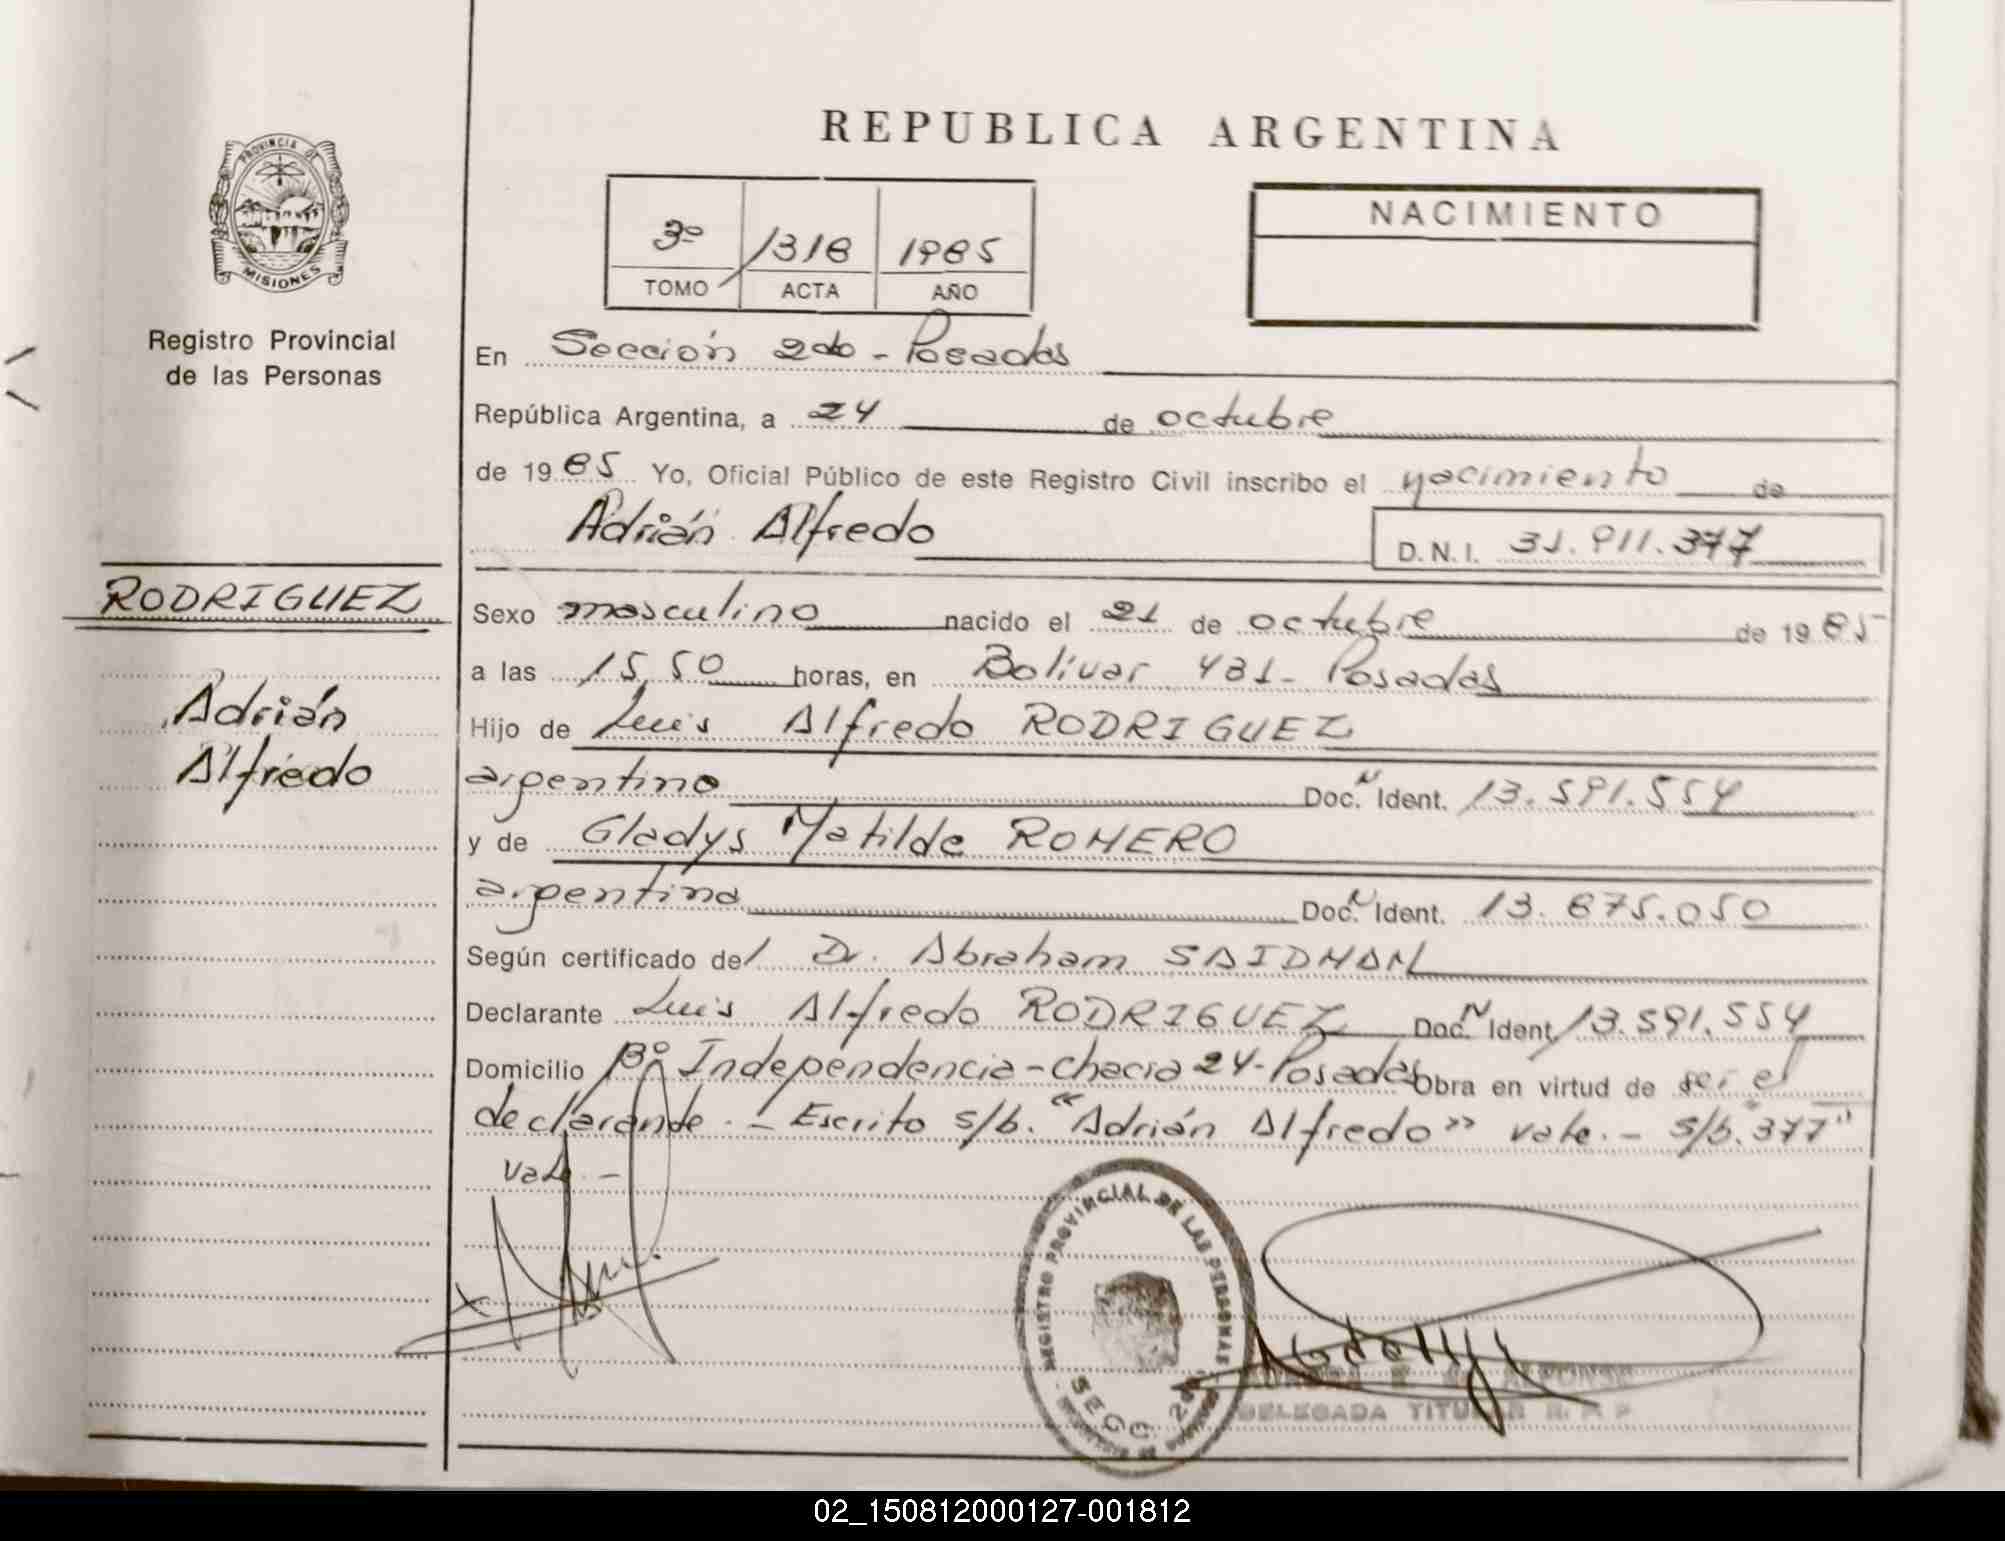 PROVINCIA DE
MISIONES
Registro Provincial
de las Personas
RODRIGUEZ
Adrián
Alfredo
REPUBLICA ARGENTINA
3º 1318 1985
TOMO ACTA AÑO
NACIMIENTO
En Sección 2da - Posadas
República Argentina, a 24 de octubre
de 1985 Yo, Oficial Público de este Registro Civil inscribo el nacimiento de
Adrián Alfredo
D.N.I. 31.911.377
Sexo masculino nacido el 21 de octubre de 1985
a las 15,50 horas, en Bolívar 431 - Posadas
Hijo de Luis Alfredo RODRIGUEZ
argentino Doc. N Ident. 13.591.554
y de Gladys Matilde ROMERO
argentina Doc. N Ident. 13.875.050
Según certificado del Dr. Abraham SAIDMAN
Declarante Luis Alfredo RODRIGUEZ Doc. N Ident. 13.591.554
Domicilio Bº Independencia - Chacra 24 - Posadas Obra en virtud de ser el
declarande . - Escrito s/b. "Adrián Alfredo" vale. - s/b. "377"
vale -
REGISTRO PROVINCIAL DE LAS PERSONAS
SECC. 2da.
DELEGADA TITULAR R. P. P.
02_150812000127-001812